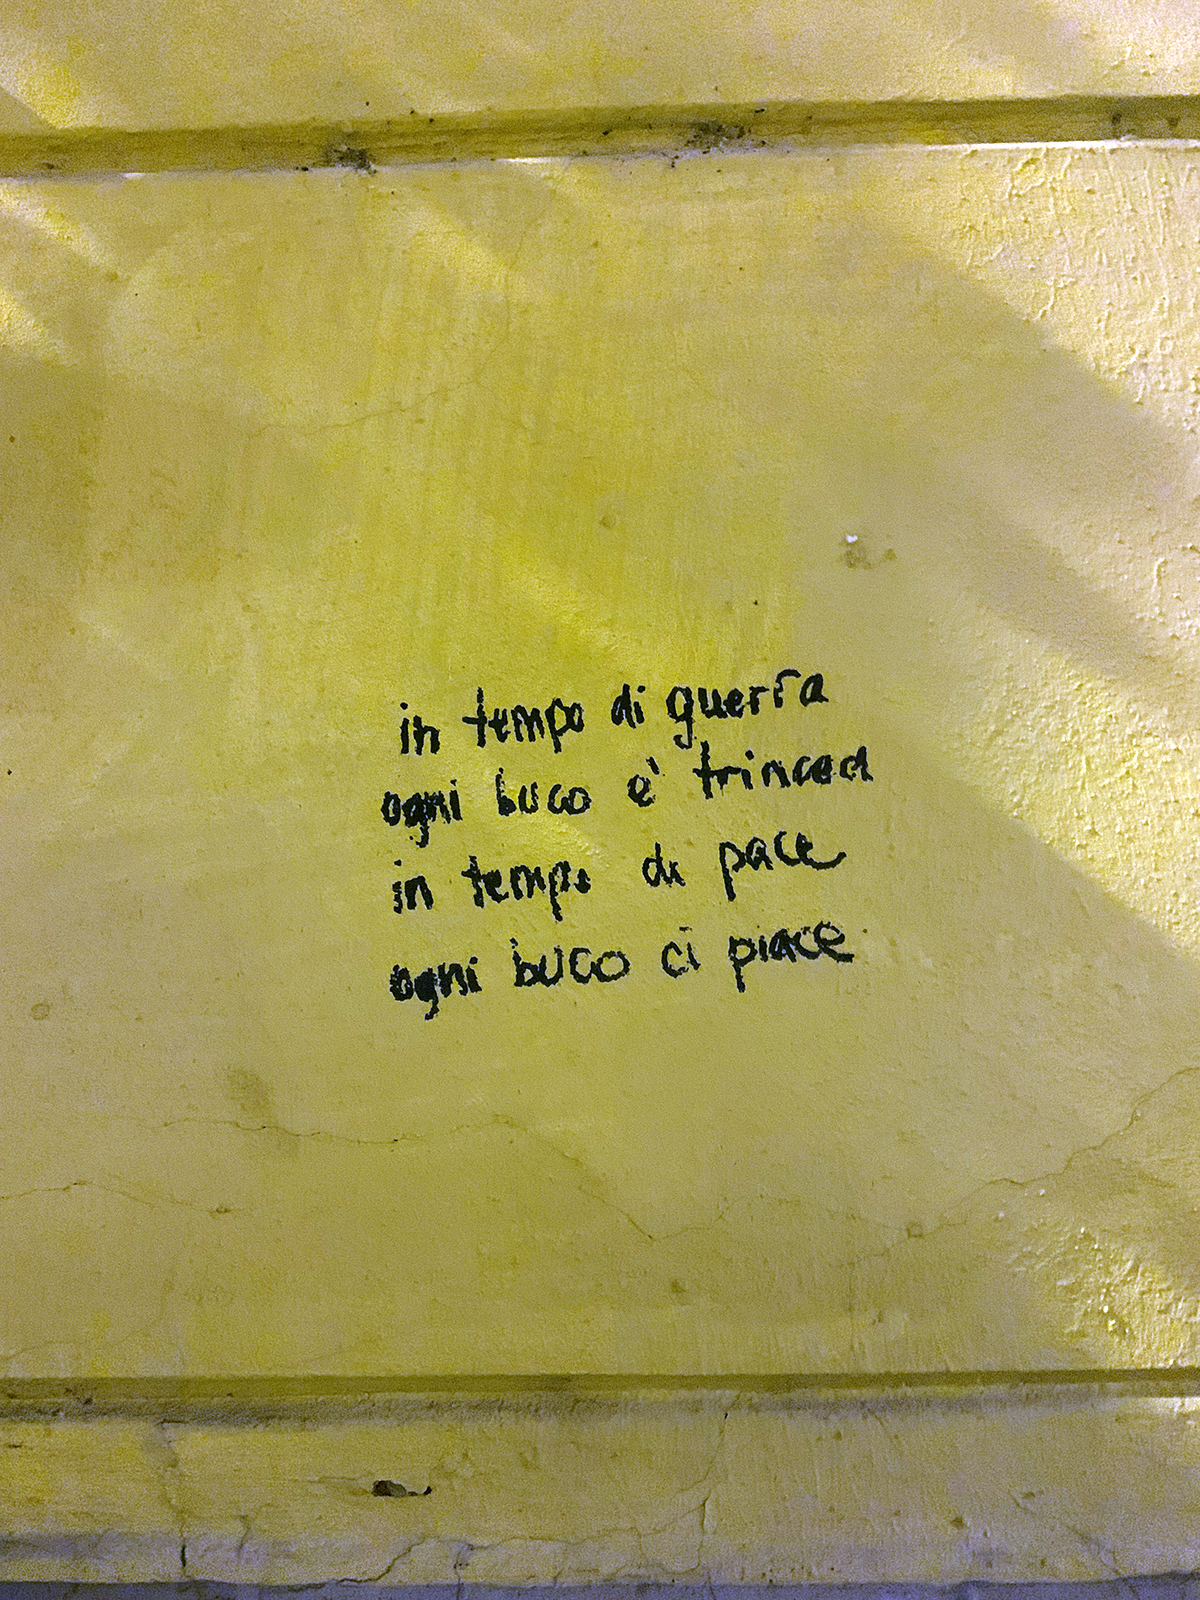 in tempo di guerra
ogni buco è trincea
in tempo di pace
ogni buco ci piace